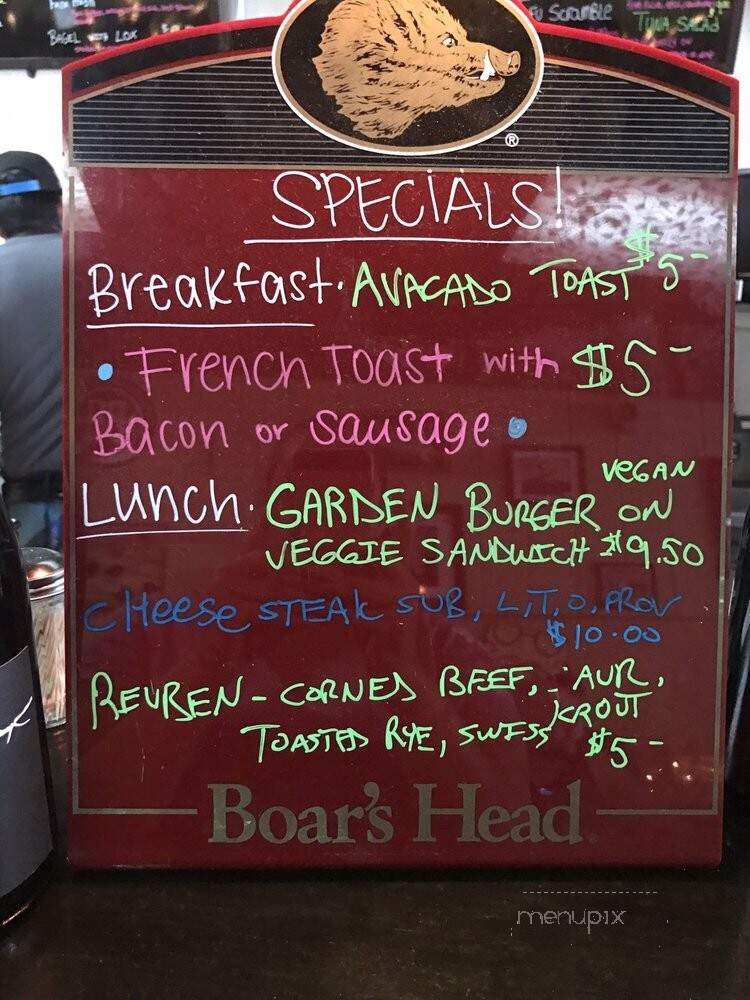 BAGEL WITH LOX
SCramBLE
TUNA SALAD
®
SPECIALS!
Breakfast · AVACADO TOAST $5-
• French Toast with $5-
Bacon or Sausage •
Lunch · GARDEN BURGER ON VEGAN
VEGGIE SANDWICH $9.50
CHeese STEAK SUB, L,T,O, PROV
$10.00
REUBEN - CORNED BEEF,
KROUT
TOASTED RYE, SWISS $5-
Boar's Head
menupix